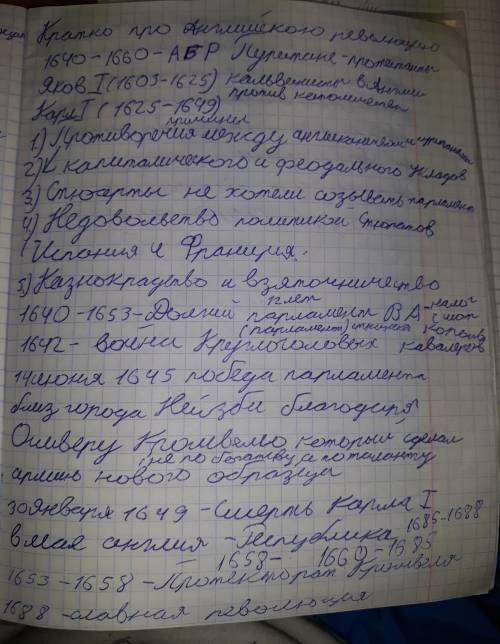 Кратко про Английскою революцию
1640-1660-АБР Пуритане-протестанты
Яков I (1603-1625) кальвенисты в Англии
Карл I (1625-1649) против католичества
причины
1) Противоречия между англиканством и
2) капиталического и феодального укладов
3) Стюарты не хотели созывать парламент
4) Недовольство политикой Стюартов
Испания и Франция.
5) Казнокрадство и взяточничество
12 лет
1640-1653-Долгий парламент В А-налог
(парламент) король
1642- война Круглоголовых кавалеров
14 июня 1645 победа парламента
близ города Нейзби благодаря
Оливеру Кромвелю который сделал
не по богатству, а по таланту
армию нового образца
30 января 1649 -Смерть Карла I
1685-1688
в мая англия -Республика
1658- 1660-1685
1653-1658-Протекторат Кромвеля
1688 -славная революция